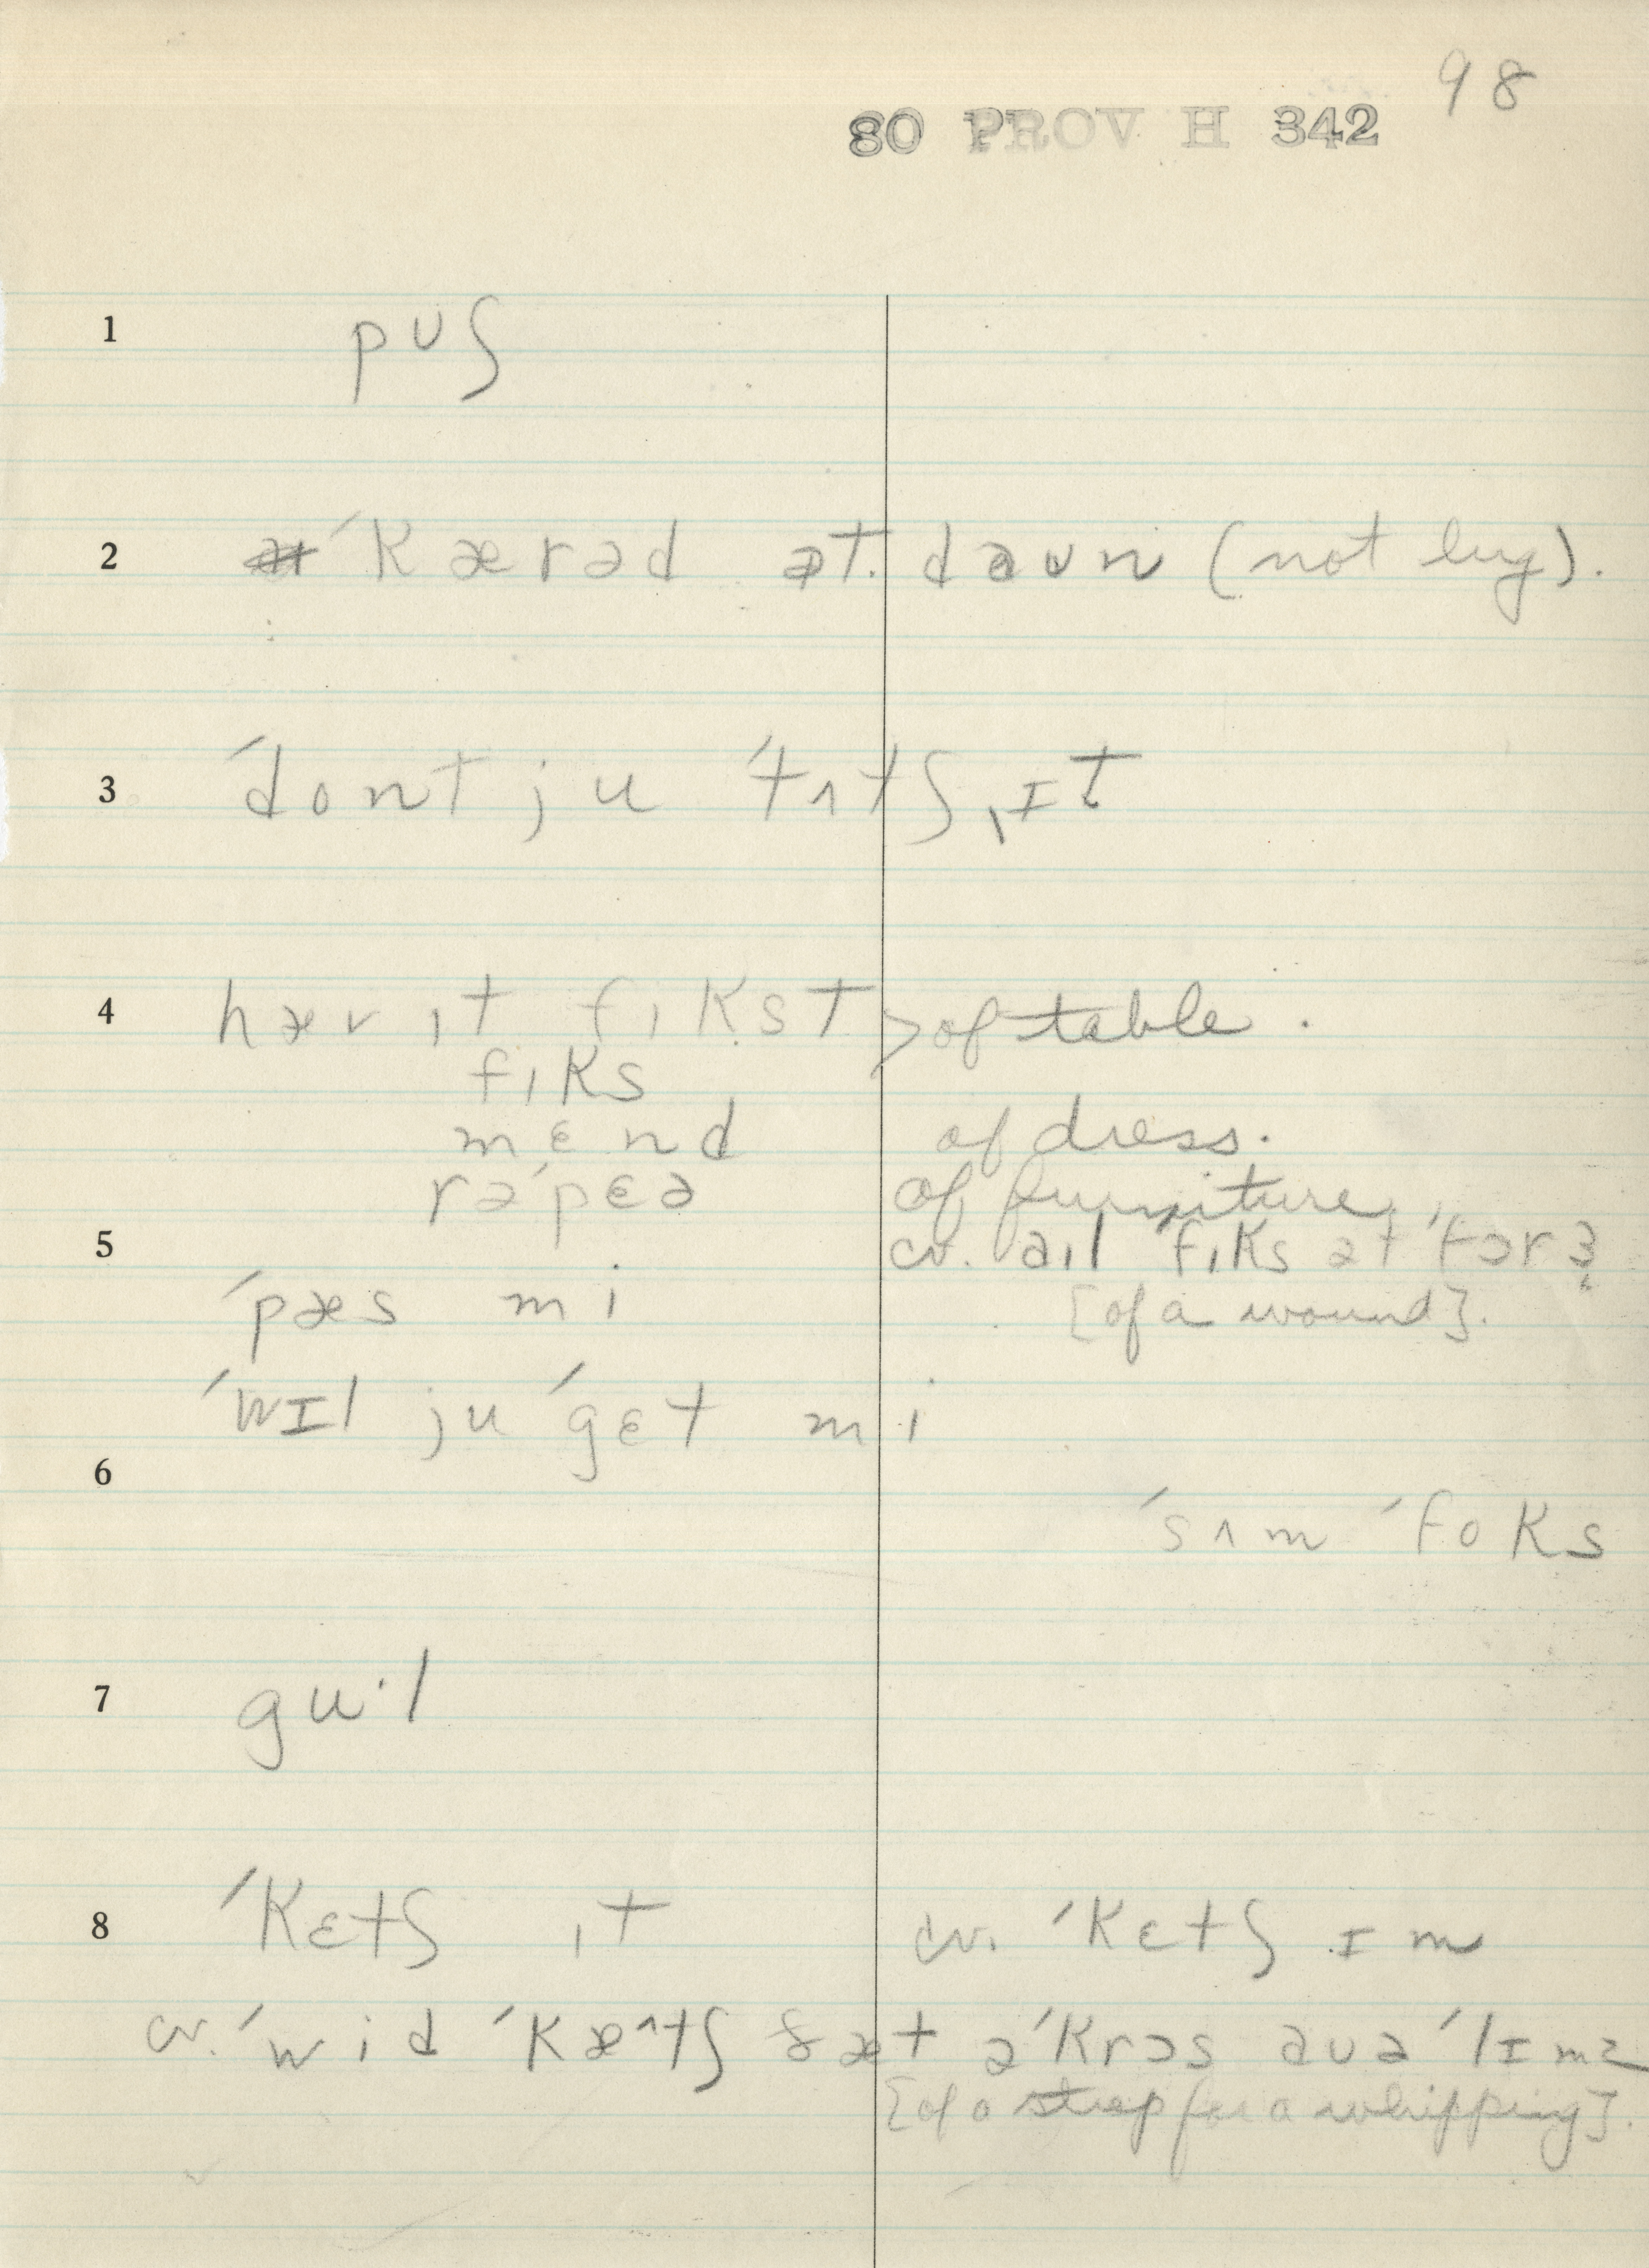 98
80 PROV H 342
1 pʊʃ
2 ˈkærəd ət daʊn (not lug).
3 ˈdont ju ˈtʌtʃ ˌɪt
4 hæv ɪt fɪkst > of table.
fɪks
mɛnd of dress.
rəˈpɛə of furniture
5 cv. aɪl ˈfɪks ət ˈfɔr ʒ
ˈpæs mi [of a wound].
ˈwɪl ju ˈgɛt mi
6
ˈsʌm ˈfoks
7 gu·l
8 ˈkɛtʃ ɪt cv. ˈkɛtʃ ɪm
cv. ˈwid ˈkæ^tʃ ðæt əˈkrɔs aʊə ˈlɪmz
[of a strap for a whipping].